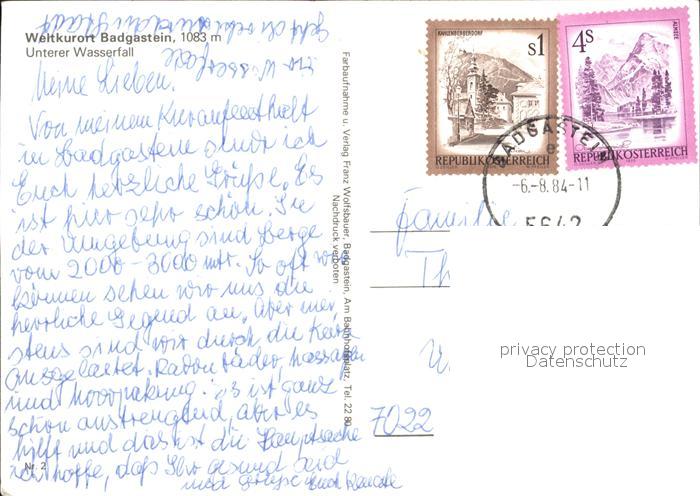 Weltkurort Badgastein, 1083 m
Unterer Wasserfall
Meine Lieben.
Von meinem Kuraufenthalt
in Badgastein sende ich
Euch herzliche Grüße. Es
ist hier sehr schön. In
der Umgebung sind Berge
vom 2000-3000 mtr. So oft wir
können sehen wir uns die
herrliche Gegend an, aber mei,
stens sind wir durch die Kur
ausgelastet. Radonbäder, Massagen
und Moorpackung. Es ist ganz
schön anstrengend, aber es
hilft und das ist die Hauptsache
ich hoffe, daß Ihr gesund seid
und grüße Euch Renate
Nr. 2
Farbaufnahme u. Verlag Franz Wolfsbauer, Badgastein, Am Bahnhofplatz, Tel. 22 80
Nachdruck verboten
KAHLENBERGERDORF
s1
REPUBLIK ÖSTERREICH
ALMSEE
4s
REPUBLIK ÖSTERREICH
BADGASTEIN
e
-6.-8.84-11
5642
Familie
Th
7022
privacy protection
Datenschutz